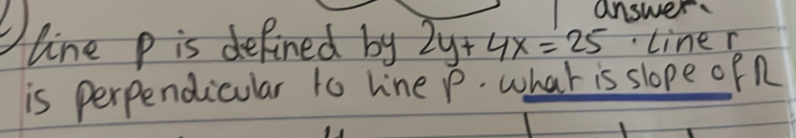 answer.
line p is defined by 2y+4x=25. Line r
is perpendicular to line p. what is slope of R